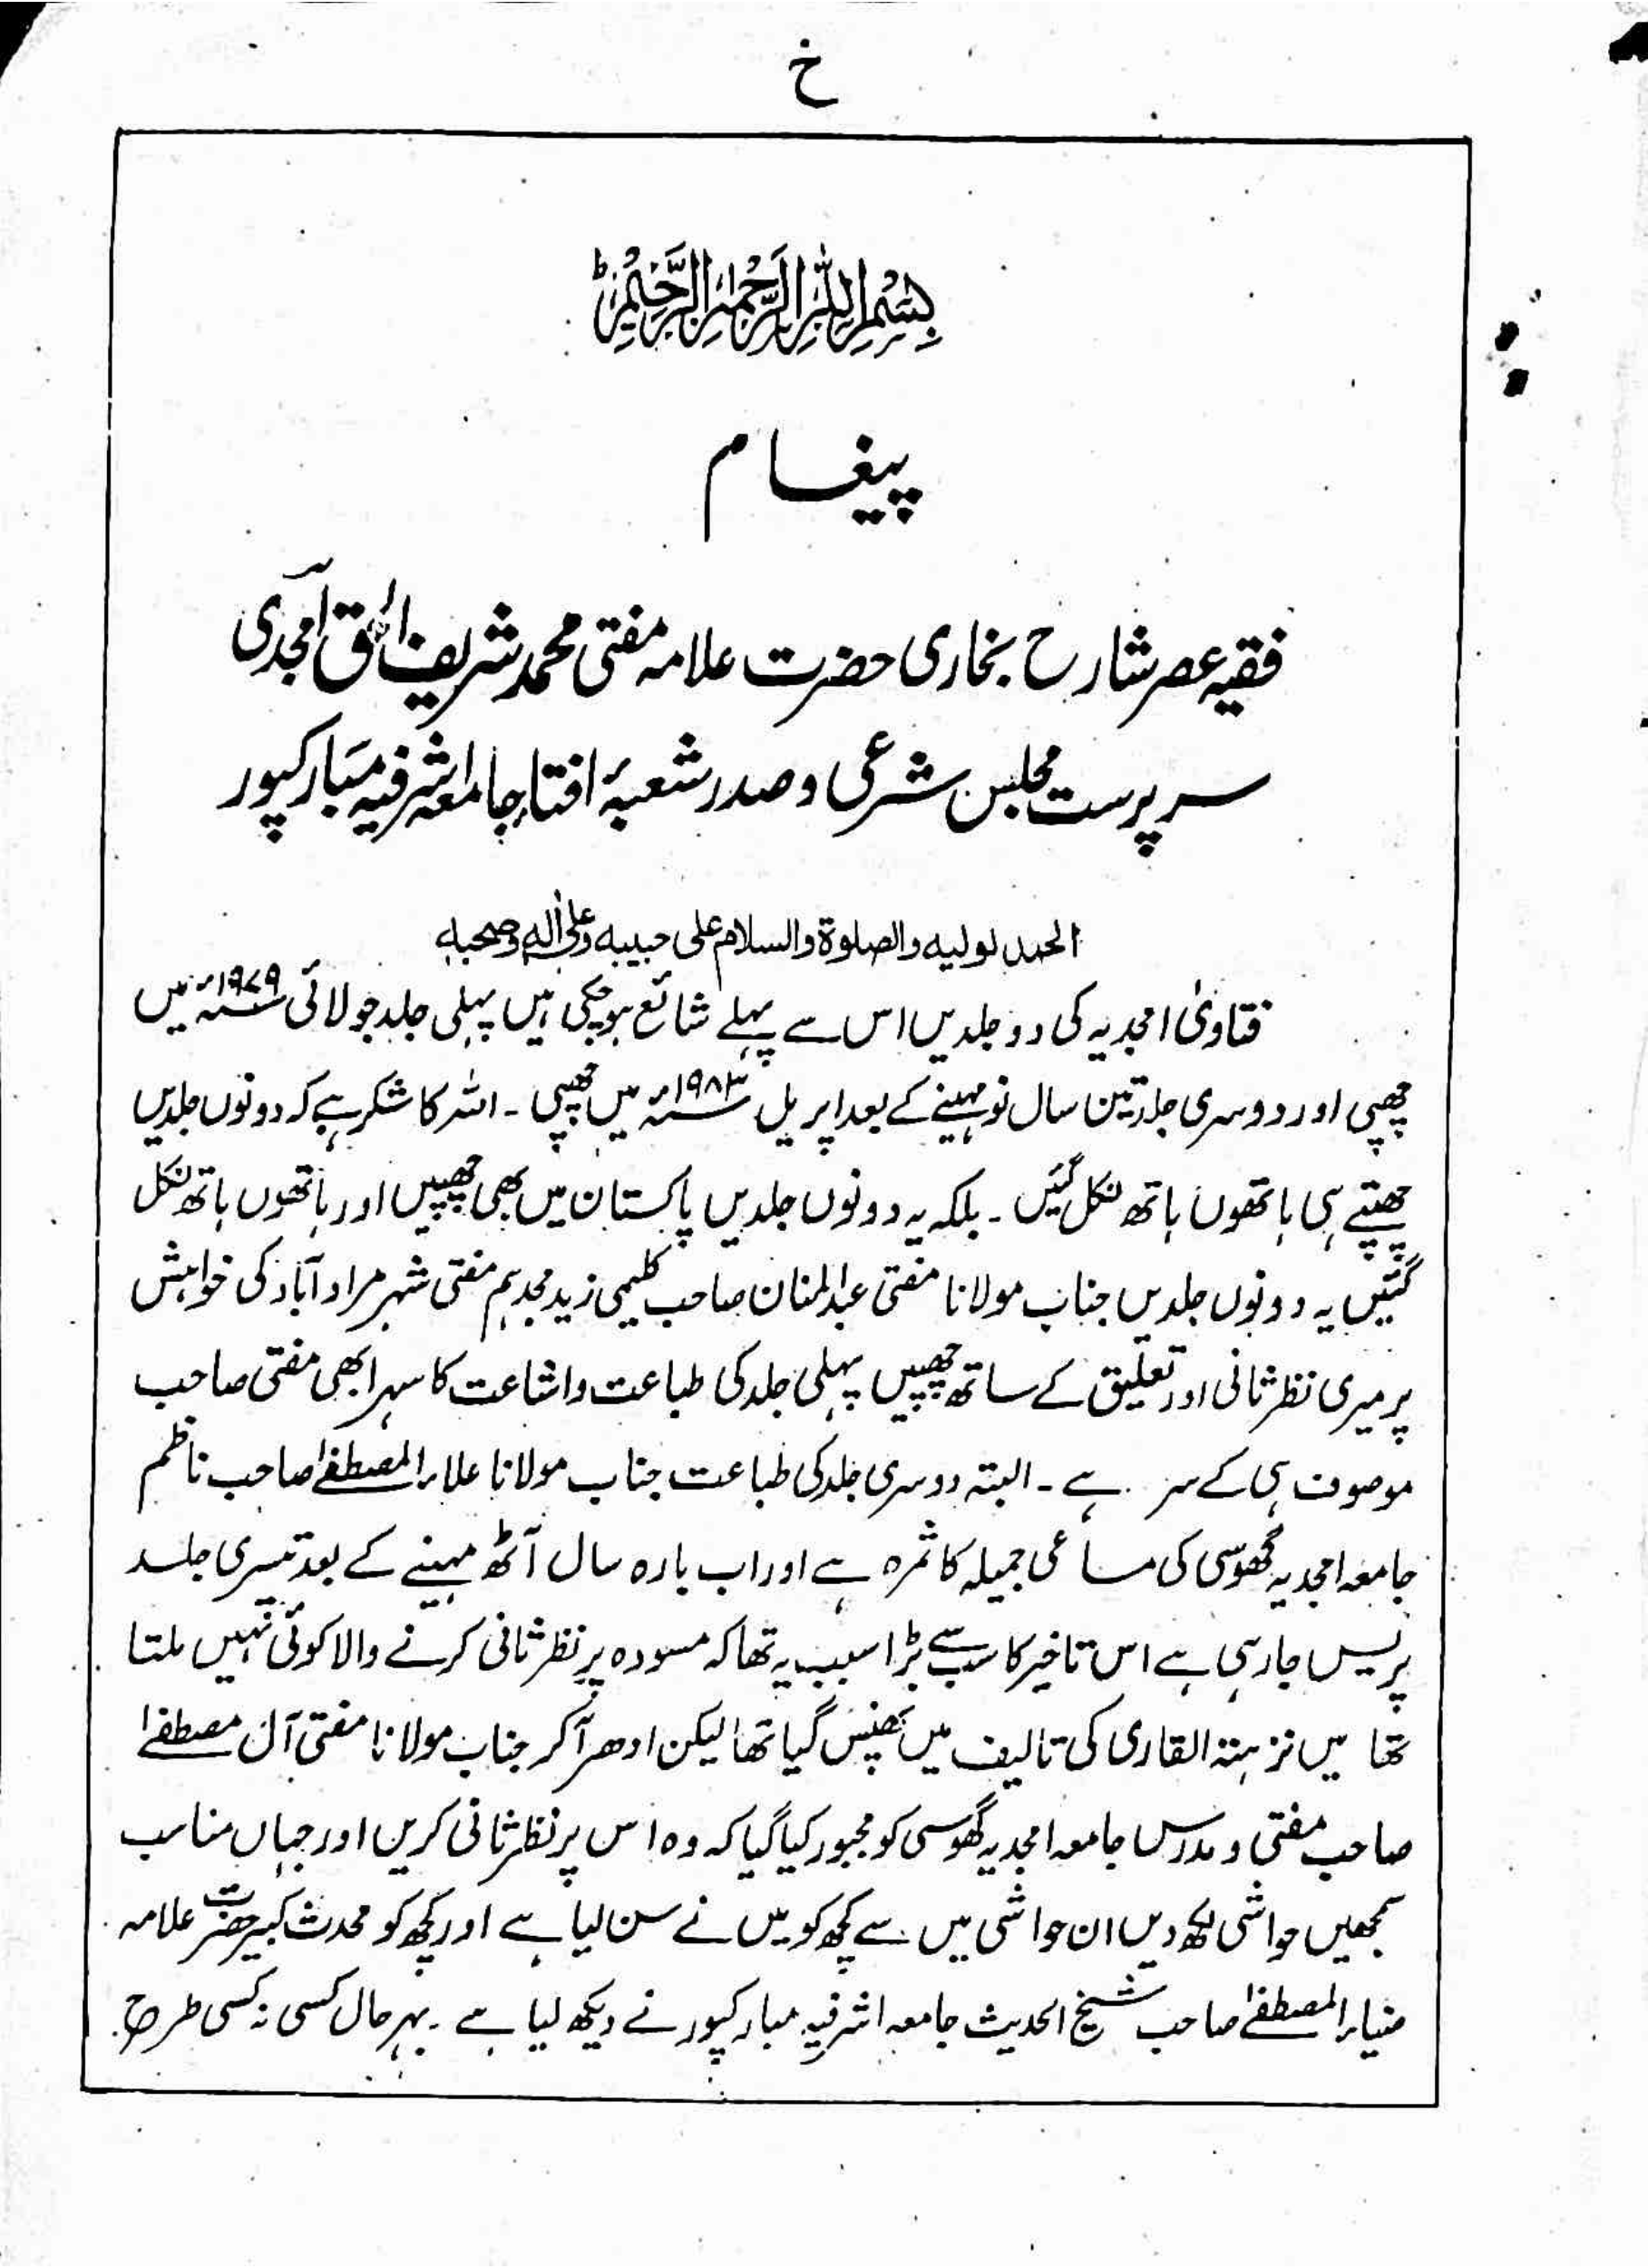 خ
بِسْمِ اللّٰهِ الرَّحْمٰنِ الرَّحِيْمِ ط
پیغام
فقیہ عصر شارح بخاری حضرت علامہ مفتی محمد شریف الحق امجدی
سرپرست مجلس شرعی و صدر شعبۂ افتاء جامعہ اشرفیہ مبارکپور
الحمد لولیہ والصلوٰۃ والسلام علی حبیبہ وعلیٰ اٰلہٖ وصحبہٖ
فتاویٰ امجدیہ کی دو جلدیں اس سے پہلے شائع ہوچکی ہیں پہلی جلد جولائی ۱۹۷۹ء میں
چھپی اور دوسری جلد تین سال نو مہینے کے بعد اپریل ۱۹۸۳ء میں چھپی ۔ اللہ کا شکر ہے کہ دونوں جلدیں
چھپتے ہی ہاتھوں ہاتھ نکل گئیں ۔ بلکہ یہ دونوں جلدیں پاکستان میں بھی چھپیں اور ہاتھوں ہاتھ نکل
گئیں یہ دونوں جلدیں جناب مولانا مفتی عبدالمنان صاحب کلیمی زید مجدہم مفتی شہر مرادآباد کی خواہش
پر میری نظر ثانی اور تعلیق کے ساتھ چھپیں پہلی جلد کی طباعت واشاعت کا سہرا بھی مفتی صاحب
موصوف ہی کے سر ہے ۔ البتہ دوسری جلد کی طباعت جناب مولانا علاء المصطفےٰ صاحب ناظم
جامعہ امجدیہ گھوسی کی مساعی جمیلہ کا ثمرہ ہے اور اب بارہ سال آٹھ مہینے کے بعد تیسری جلد
پریس جارہی ہے اس تاخیر کا سب سے بڑا سبب یہ تھا کہ مسودہ پر نظر ثانی کرنے والا کوئی نہیں ملتا
تھا میں نزہتہ القاری کی تالیف میں پھنس گیا تھا لیکن ادھر آکر جناب مولانا مفتی آل مصطفےٰ
صاحب مفتی و مدرس جامعہ امجدیہ گھوسی کو مجبور کیا گیا کہ وہ اس پر نظر ثانی کریں اور جہاں مناسب
سمجھیں حواشی لکھ دیں ان حواشی میں سے کچھ کو میں نے سن لیا ہے اور کچھ کو محدث کبیر حضرت علامہ
ضیاء المصطفےٰ صاحب شیخ الحدیث جامعہ اشرفیہ مبارکپور نے دیکھ لیا ہے ۔ بہرحال کسی نہ کسی طرح